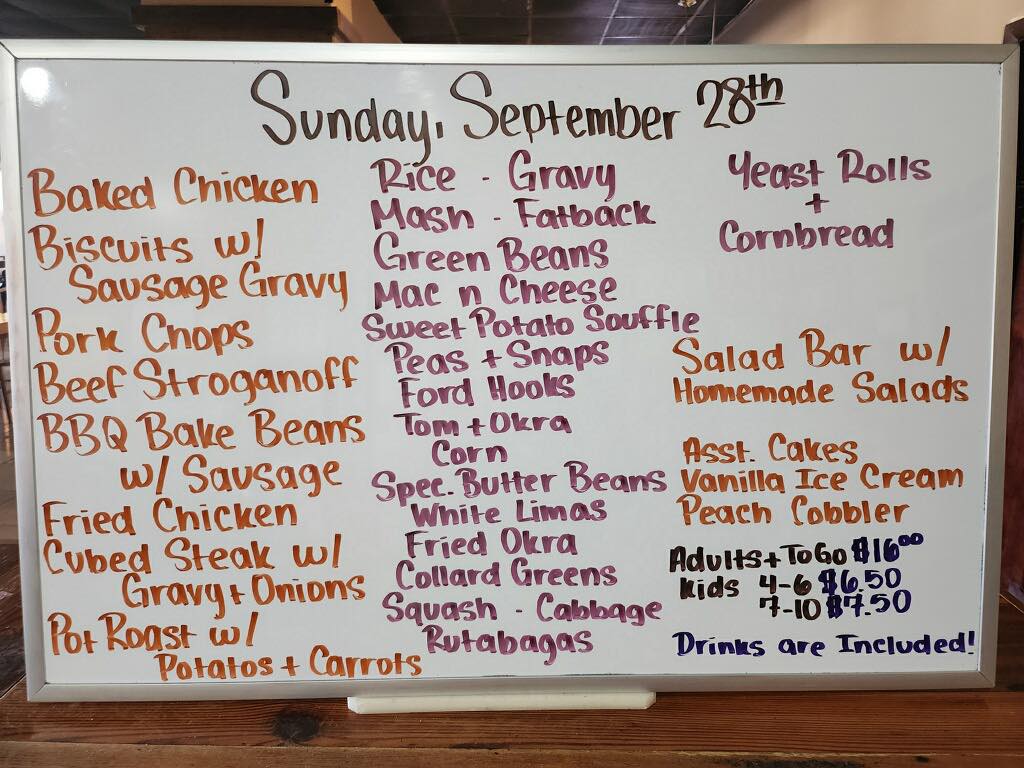 Sunday, September 28th
Baked Chicken
Biscuits w/
Sausage Gravy
Pork Chops
Beef Stroganoff
BBQ Bake Beans
w/ Sausage
Fried Chicken
Cubed Steak w/
Gravy + Onions
Pot Roast w/
Potatos + Carrots
Rice - Gravy
Mash - Fatback
Green Beans
Mac n Cheese
Sweet Potato Souffle
Peas + Snaps
Ford Hooks
Tom + Okra
Corn
Spec. Butter Beans
White Limas
Fried Okra
Collard Greens
Squash - Cabbage
Rutabagas
Yeast Rolls
+
Cornbread
Salad Bar w/
Homemade Salads
Asst. Cakes
Vanilla Ice Cream
Peach Cobbler
Adults + To Go $16.00
Kids 4-6 $6.50
7-10 $7.50
Drinks are Included!